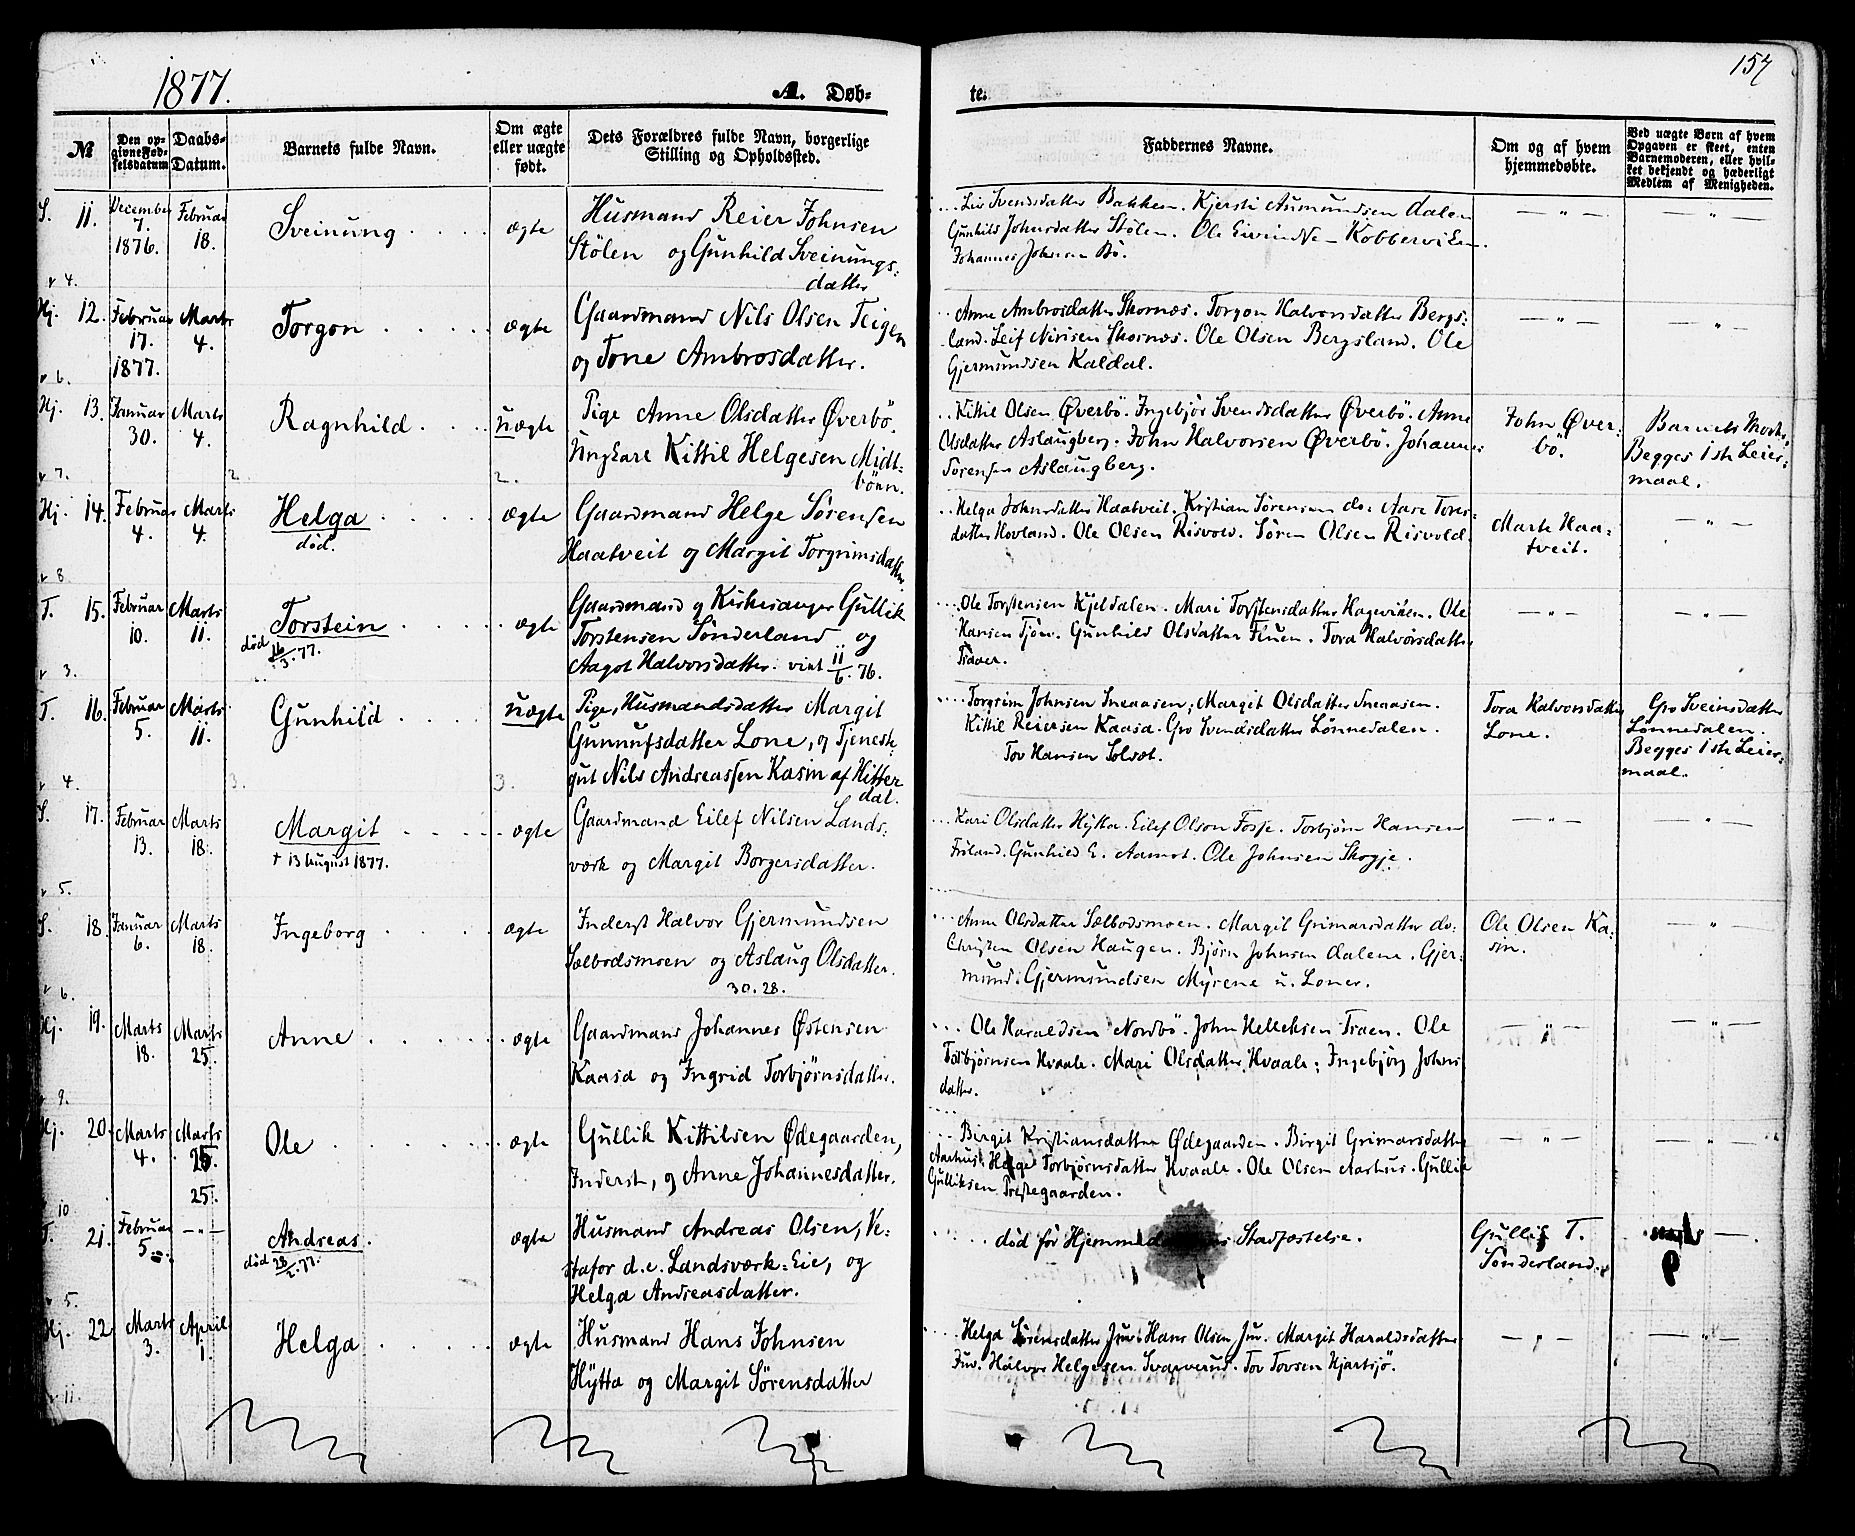 1877.
A. Døb-
te.
157
№
Den op-
givne Fød-
selsdatum
Daabs-
Datum.
Barnets fulde Navn.
Om ægte
eller uægte
født.
Dets Forældres fulde Navn, borgerlige
Stilling og Opholdssted.
Faddernes Navne.
Om og af hvem
hjemmedøbte.
Ved uægte Børn af hvem
Opgaven er skeet, enten
Barnemoderen, eller hvil-
ket bekjendt og hæderligt
Medlem af Menigheden.
S. 11.
v 4.
December
7.
1876.
Februar
18.
Sveinung
ægte
Husmand Reier Johnsen
Stølen og Gunhild Sveinungs-
datter
Svendsdatter Bakken. Kjersti Aumundsen Dalen
Gunhild Johnsdatter Stølen. Ole Eivindsen Kobberviken.
Johannes Johnsen Bö.
— " —
— " —
Hj. 12.
v 6.
Februar
17.
1877.
Marts
4.
Torgon
ægte
Gaardmand Nils Olsen Teigen
og Tone Ambrosdatter.
Anne Ambrosdatter Skornæs. Torgon Halvorsdatter Bergs-
land. Leif Nirisen Skornæs. Ole Olsen Bergsland. Ole
Gjermundsen Kaldal.
— " —
— " —
Hj. 13.
v 7.
Januar
30.
Marts
4.
Ragnhild
2.
uægte
2.
Pige Anne Olsdatter Øverbö.
Ungkarl Kittil Helgesen Midt-
bönn.
Kittil Olsen Øverbö. Ingebjör Svendsdatter Øverbö. Anne
Olsdatter Aslaugberg. John Halvorsen Øverbö. Johannes
Sørensen Aslaugberg.
John Øver-
bö.
Barnets Moder.
Begges 1ste Leier-
maal.
Hj. 14.
v 8.
Februar
4.
Marts
4.
Helga
död.
ægte
Gaardmand Helge Sørensen
Haatveit og Margit Torgrimsdatter
Helga Johnsdatter Haatveit. Kristian Sørensen do. Aase Tores-
datter Hovland. Ole Olsen Risvold. Søren Olsen Risvold.
Marte Haa-
tveit.
— " —
T. 15.
v 3.
Februar
10.
Marts
11.
Torstein
död 16/3.77.
ægte
Gaardmand og Kirkesanger Gullik
Torstensen Sønderland og
Aagot Halvorsdatter. viet 11/6.76.
Ole Torstensen Kjeldalen. Mari Torstensdatter Hagevigen. Ole
Hansen Tjön. Gunhild Olsdatter Fluen. Tora Halvorsdatter
Traaer.
— " —
— " —
T. 16.
v 4.
Februar
5.
Marts
11.
Gunhild
3.
uægte
3.
Pige, Husmandsdatter Margit
Gunnufsdatter Lone, og Tjeneste-
gut Nils Andreassen Kasin af Hitter-
dal.
Torgrim Johnsen Sneaasen, Margit Olsdatter Sneaasen.
Kittil Reiersen Kaasa. Gro Svendsdatter Lønnedalen.
Tov Hansen Solsæt.
Tora Halvorsdatter
Lone.
Gro Sveinsdatter
Lønnedalen.
Begges 1ste Leier-
maal.
S. 17.
v 5.
Februar
13.
Marts
18.
Margit
† 13 August 1877.
ægte
Gaardmand Eilef Nilsen Lands-
værk og Margit Borgersdatter.
Kari Olsdatter Hytta. Eilef Olson Fosse. Torbjörn Hansen
Friland. Gunhild E. Aamot. Ole Johnsen Skogje.
— " —
— " —
S. 18.
v 6.
Januar
6.
Marts
18.
Ingeborg
ægte
Inderst Halvor Gjermundsen
Sælbodsmoen og Aslaug Olsdatter.
30. 28.
Anne Olsdatter Sælbodsmoen. Margit Grimarsdatter do.
Christen Olsen Haugen. Bjørn Johnsen Dalene. Gjer-
mund Gjermundsen Myrene u. Loner.
Ole Olsen Ka-
sin.
— " —
Hj. 19.
v 9.
Marts
18.
Marts
25.
Anne
ægte
Gaardmand Johannes Østensen
Kaasa og Ingrid Torbjörnsdatter.
Ole Haraldsen Nordbö. John Helleksen Traen. Ole
Torbjørnsen Hvaale. Mari Olsdatter Hvaale. Ingebjörg Johns-
datter.
— " —
— " —
Hj. 20.
10
Marts
4.
Marts
25.
25.
Ole
ægte
Gullik Kittilsen Ødegaarden,
Inderst, og Anne Johannesdatter.
Birgit Kristiansdatter Ødegaarden. Birgit Grimarsdatter
Aarhus. Helge Torbjørnsdatter Hvaale. Ole Olsen Aarhus. Gullik
Gulliksen Prestegaarden.
— " —
— " —
T. 21.
v 5.
Februar
5.
— " —
Andreas.
död 28/2.77.
ægte
Husmand Andreas Olsen, Ve-
stafor d.e. Landsværk-Eie, og
Helga Andreasdatter.
död før Stadfæstelse.
Gullik T.
Sönderland.
Hj. 22.
v 11.
Marts
3.
April
1.
Helga
ægte
Husmand Hans Johnsen
Hytta og Margit Sørensdatter
Helga Sørensdatter Juv. Hans Olsen Juv. Margit Haraldsdatter
Juv. Halvor Helgesen Svarverud. Tov Tovsen Hjartsjö.
— " —
— " —